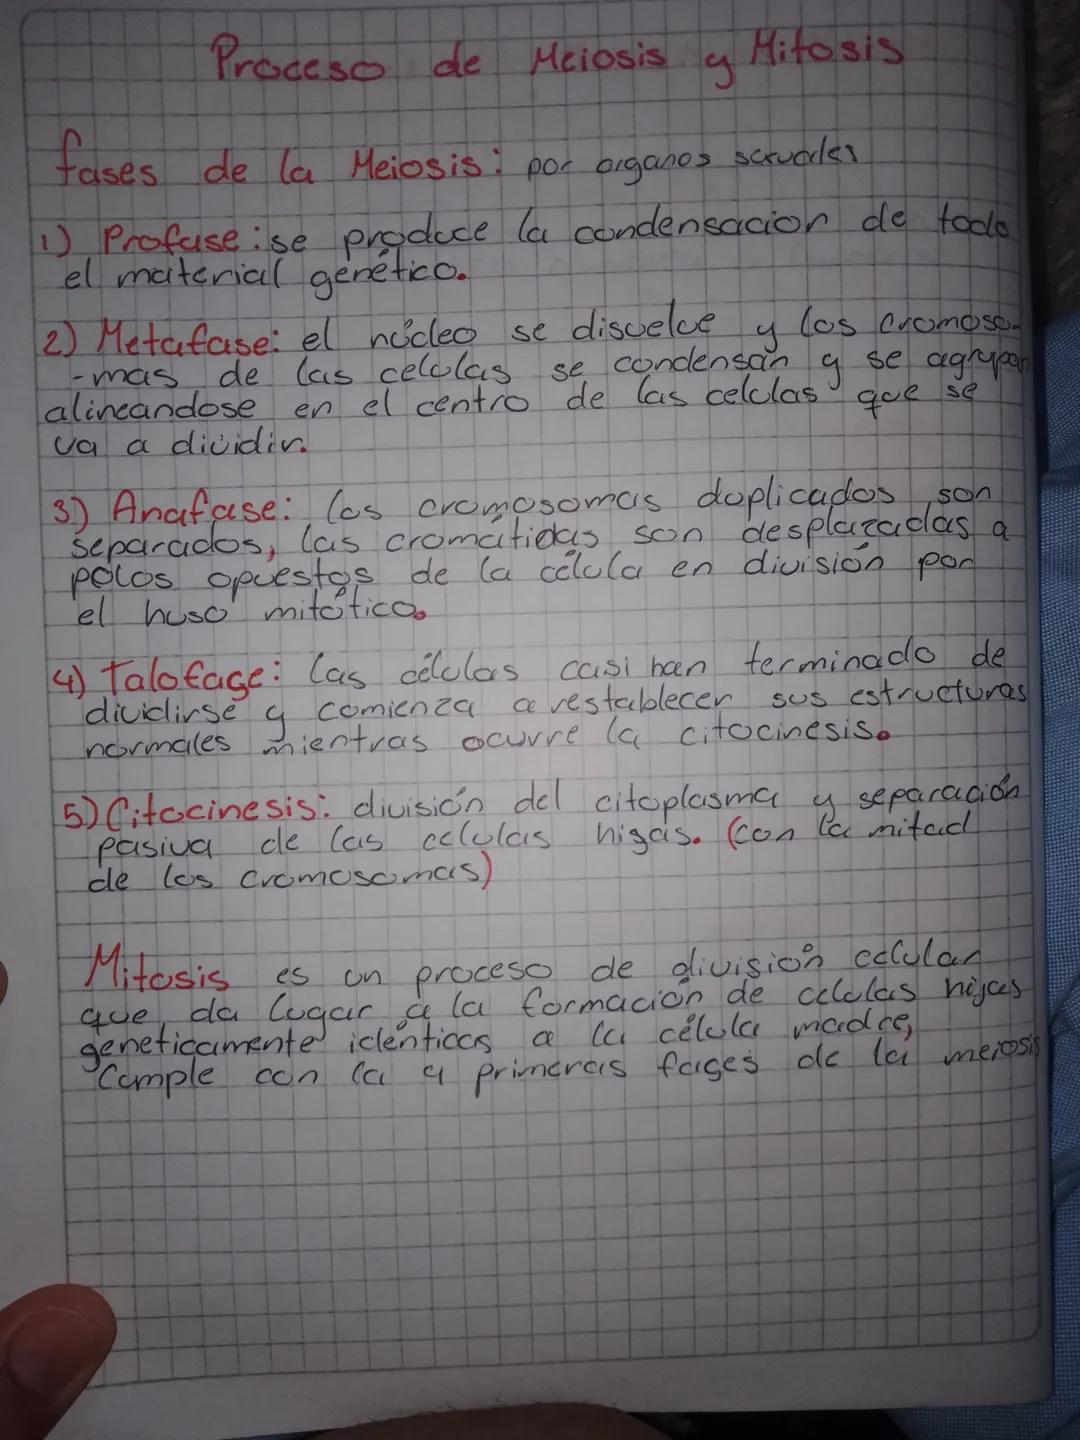 Proceso de Meiosis y Mitosis
fases de la Meiosis: por organos sexuales
1) Profase: se produce la condensacion de todo
el material genético.
2) Metafase: el núcleo se disuelve y los cromoso-
-mas de las celulas se condensan y se agrupan
alineandose en el centro de las celulas que se
va a dividir.
3) Anafase: los cromosomas duplicados son
separados, las cromatidas son desplazadas a
polos opuestos de la célula en división por
el huso mitótico.
4) Talofage: las células casi han terminado de
dividirse y comienza a restablecer sus estructuras
normales mientras ocurre la citocinesis.
5) Citocinesis: división del citoplasma y separación
pasiva de las celulas higas. (con la mitad
de los cromosomas)
Mitosis es un proceso de división celular
que da lugar a la formación de celulas hijas
geneticamente idénticas a la célula madre,
Cumple con la 4 primeras fages de la meiosis